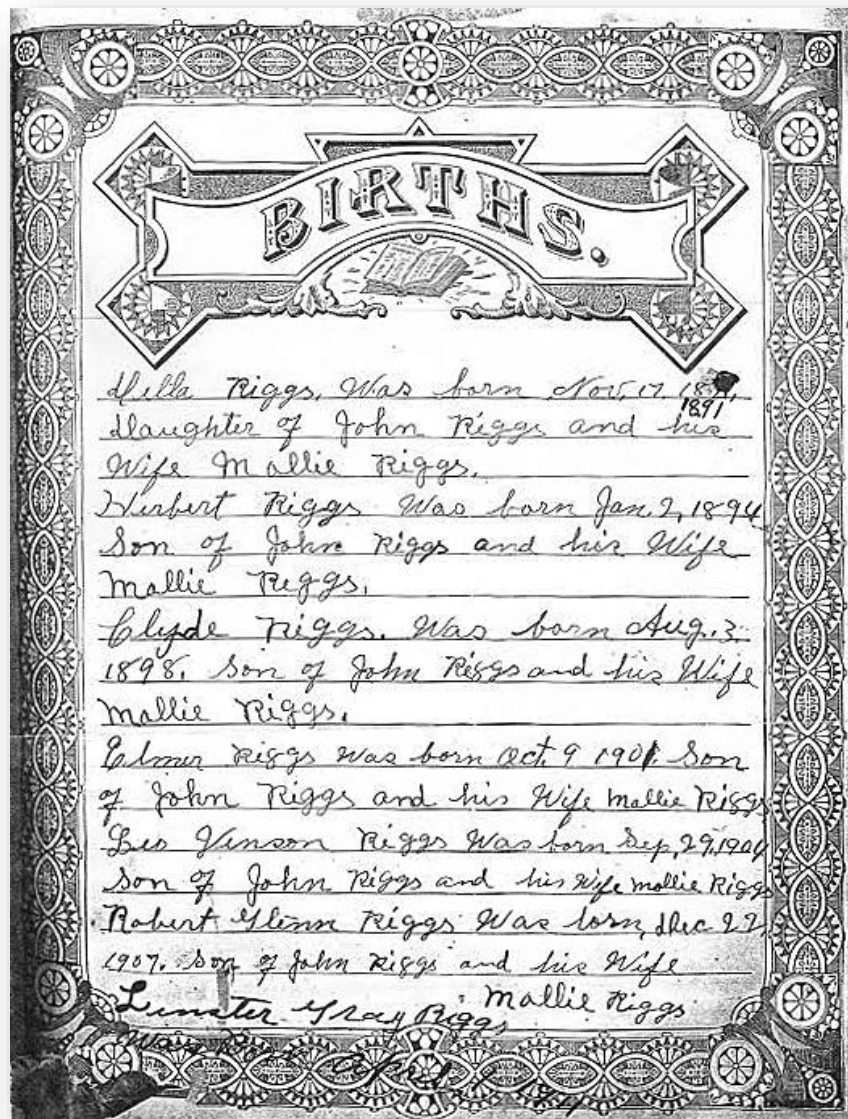 BIRTHS.
Della Riggs. Was born Nov. 17 18
1891
daughter of John Riggs and his
Wife Mallie Riggs.
Herbert Riggs Was born Jan. 2, 1894
Son of John Riggs and his Wife
Mallie Riggs.
Clyde Riggs. Was born Aug. 3.
1898. Son of John Riggs and his Wife
Mallie Riggs.
Elmer Riggs Was born Oct. 9 1901. Son
of John Riggs and his Wife Mallie Riggs
Leo Vinson Riggs Was born Sep, 29, 1904
Son of John Riggs and his Wife Mallie Riggs
Robert Glenn Riggs Was born, Dec 22
1907. Son of John Riggs and his Wife
Mallie Riggs
Gray Riggs
Was Born April